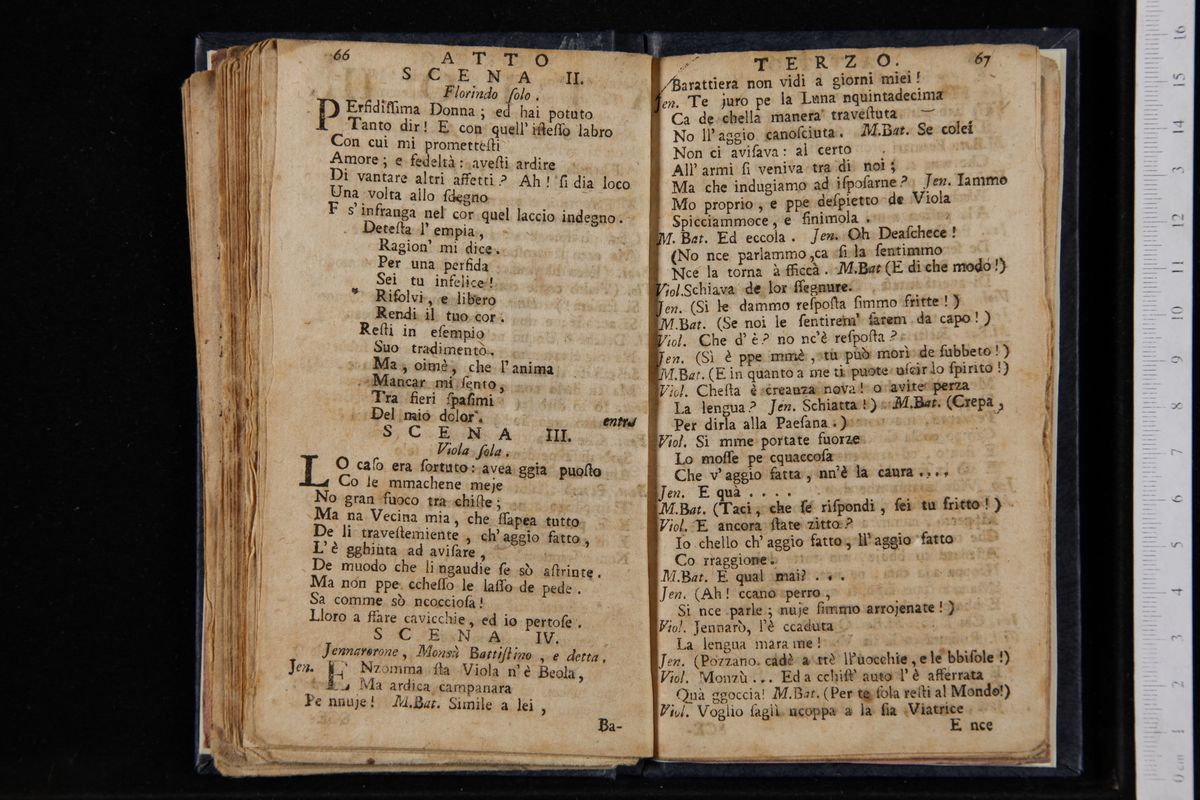 66 ATTO
SCENA II.
Florindo ſolo.
PErfidiſſima Donna; ed hai potuto
Tanto dir! E con quell' iſteſſo labro
Con cui mi prometteſti
Amore; e fedeltà: aveſti ardire
Di vantare altri affetti? Ah! ſi dia loco
Una volta allo ſdegno
E s'infranga nel cor quel laccio indegno.
Deteſta l' empia,
Ragion' mi dice.
Per una perfida
Sei tu infelice!
Riſolvi, e libero
Rendi il tuo cor.
Reſti in eſempio
Suo tradimento.
Ma, oimè, che l'anima
Mancar mi ſento,
Tra fieri ſpaſimi
Del mio dolor. entra
SCENA III.
Viola ſola.
LO caſo era ſortuto: avea ggia puoſto
Co le mmachene meje
No gran fuoco tra chiſte;
Ma na Vecina mia, che ſſapea tutto
De li traveſtemiente, ch'aggio fatto,
L'è gghiuta ad aviſare,
De muodo che li ngaudie ſe sò aſtrinte.
Ma non ppe ccheſſo le laſſo de pede.
Sa comme sò ncoccioſa!
Lloro a ffare cavicchie, ed io pertoſe.
SCENA IV.
Jennarorone, Monsù Battiſtino, e detta.
Jen. ENzomma ſta Viola n'è Beola,
Ma ardica campanara
Pe nnuje! M.Bat. Simile a lei,
Ba-
TERZO. 67
Barattiera non vidi a giorni miei!
Jen. Te juro pe la Luna nquintadecima
Ca de chella manera traveſtuta
No ll'aggio canoſciuta. M.Bat. Se colei
Non ci aviſava: al certo
All' armi ſi veniva tra di noi;
Ma che indugiamo ad iſpoſarne? Jen. Iammo
Mo proprio, e ppe deſpietto de Viola
Spicciammoce, e finimola.
M. Bat. Ed eccola. Jen. Oh Deaſchece!
(No nce parlammo, ca ſi la ſentimmo
Nce la torna à fficcà. M.Bat (E di che modo!)
Viol. Schiava de lor ſſegnure.
Jen. (Si le dammo reſpoſta ſimmo fritte!)
M.Bat. (Se noi le ſentirem' ſarem da capo!)
Viol. Che d'è? no nc'è reſpoſta?
Jen. (Sì è ppe mmè, tu può morì de ſubbeto!)
M.Bat. (E in quanto a me ti puote uſcir lo ſpirito!)
Viol. Cheſta è creanza nova! o avite perza
La lengua? Jen. Schiatta!) M.Bat. (Crepa,
Per dirla alla Paeſana.)
Viol. Si mme portate fuorze
Lo moſſe pe cquaccoſa
Che v'aggio fatta, nn'è la caura ....
Jen. E quà ....
M.Bat. (Taci, che ſe riſpondi, ſei tu fritto!)
Viol. E ancora ſtate zitto?
Io chello ch'aggio fatto, ll'aggio fatto
Co rraggione.
M.Bat. E qual mai? ...
Jen. (Ah! ccano perro,
Si nce parle; nuje ſimmo arrojenate!)
Viol. Jennarò, l'è ccaduta
La lengua mara me!
Jen. (Pozzano cadè a ttè ll'uocchie, e le bbiſole!)
Viol. Monzù... Ed a cchiſt' auto l'è afferrata
Quà ggoccia! M.Bat. (Per te ſola reſti al Mondo!)
Viol. Voglio ſaglì ncoppa a la ſia Viatrice
E nce